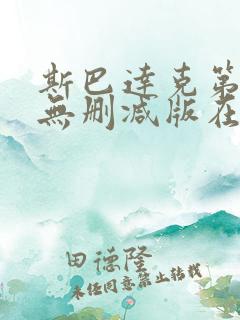 斯巴達克第
無删减版在
田德隆
未经同意禁止转载